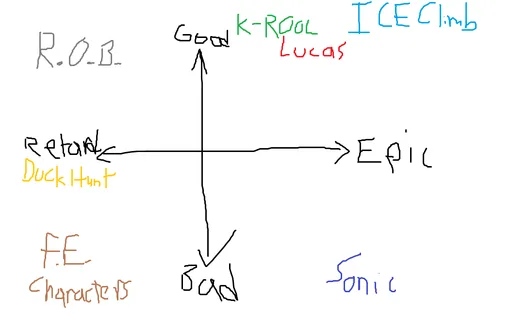 Good
K-ROOL
ICE Climb
Lucas
R.O.B.
Retard
Epic
Duck Hunt
F.E.
Characters
Bad
Sonic